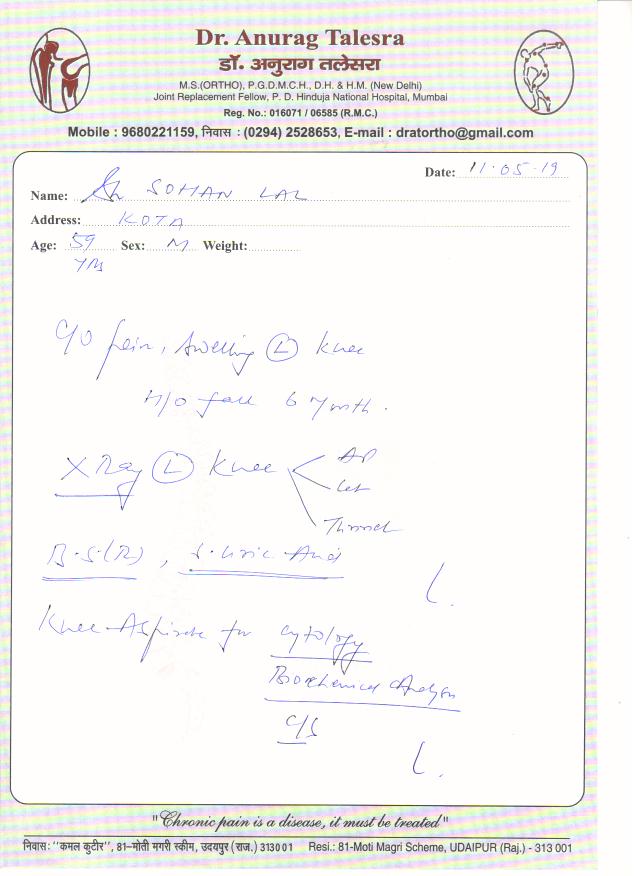 Dr. Anurag Talesra
डॉ. अनुराग तलेसरा
M.S.(ORTHO), P.G.D.M.C.H., D.H. & H.M. (New Delhi)
Joint Replacement Fellow, P. D. Hinduja National Hospital, Mumbai
Reg. No.: 016071 / 06585 (R.M.C.)
Mobile : 9680221159, निवास : (0294) 2528653, E-mail : dratortho@gmail.com
Date: 11.05.19
Name: Sh SOHAN LAL
Address: KOTA
Age: 59 Sex: M Weight:
Yrs
C/O pain, swelling (L) knee
H/O fall 6 month.
X Ray (L) Knee AP
Lat
B.S.(R), S. Uric Acid
Knee Aspirate for cytology
Biochemical Analysis
C/S
"Chronic pain is a disease, it must be treated"
निवास: "कमल कुटीर", 81-मोती मगरी स्कीम, उदयपुर (राज.) 313001 Resi.: 81-Moti Magri Scheme, UDAIPUR (Raj.) - 313 001